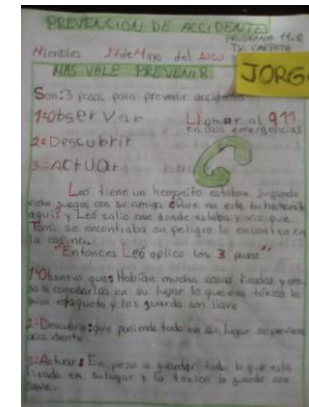 PREVENCION DE ACCIDENTES
PROGRAMA 11-2
Miercoles 27 de Mayo del 2020
TV. CARPETA
MAS VALE PREVENIR
JORG
Son: 3 pasos para prevenir accidentes
1º Observar
Llamar al 911
en caso emergencias
2º Descubrir
3º Actuar
Leó tiene un hermanito estaban jugando
video juegos con su amiga no esta tu hermanito
aqui? y Leó salio de donde estaba y vio que
Tomi se encontraba en peligro lo encontro en
la cosina.
"Entonces Leó aplico los 3 pasos"
1º Observo que: Habian muchas cosas tiradas y
so a en su lugar lo que era tóxico le
puso etiqueta y los guardo con llave
2º Descubrio: que poniendo todo en su lugar se previene
accidente
3º Actuar: En peso a guardar todo lo que esta
tirado en su lugar y lo toxico lo guardo con
llave.